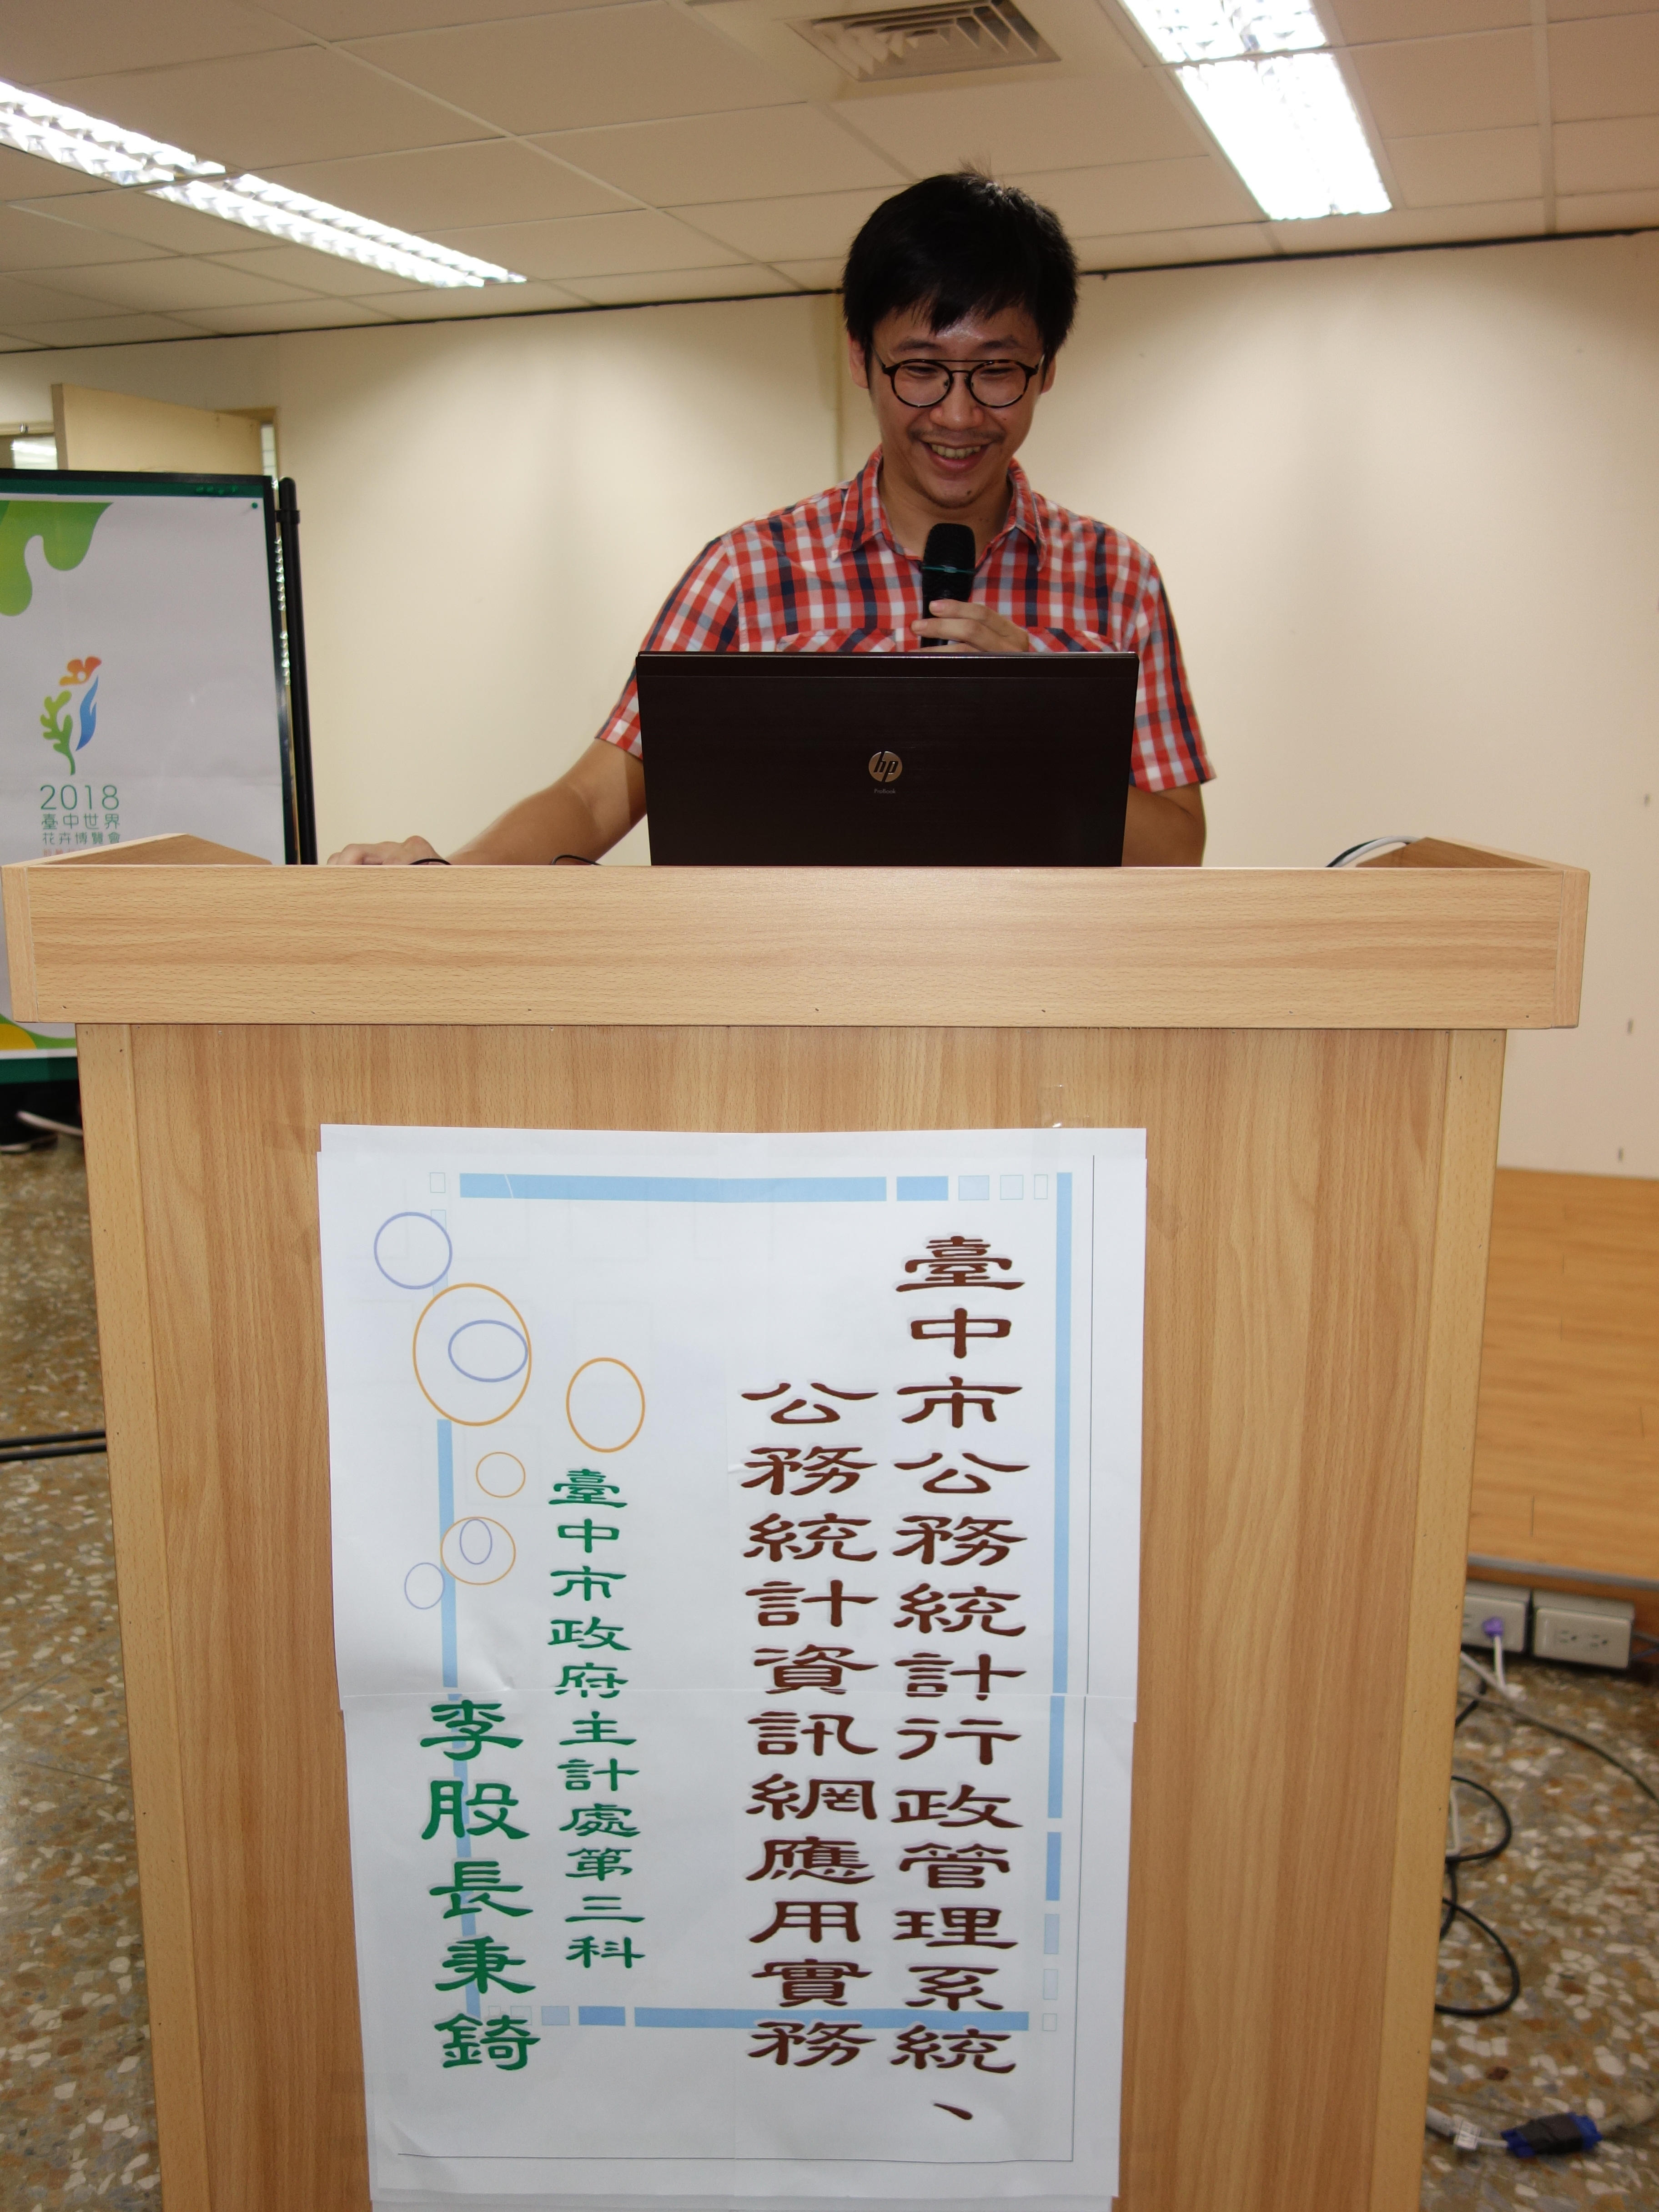 2018
臺中世界
花卉博覽會
hp
ProBook
臺中市公務統計行政管理系統、
公務統計資訊網應用實務
臺中市政府主計處第三科
李股長秉錡